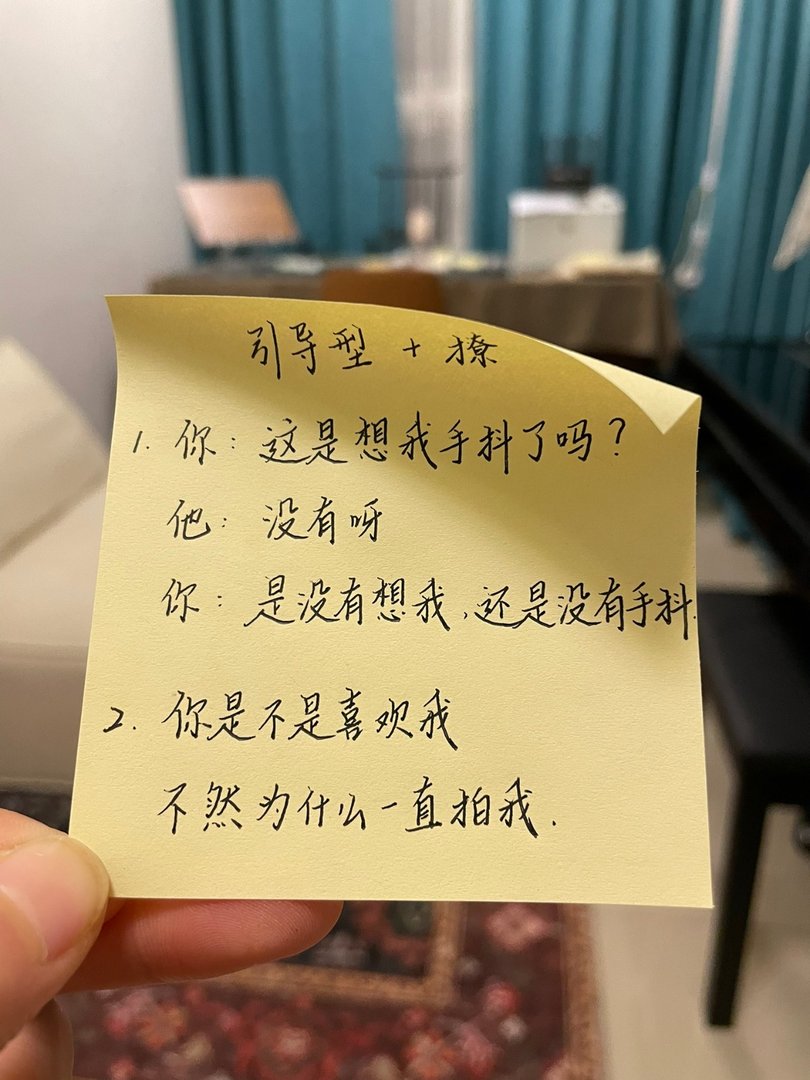 引导型 + 撩
1. 你: 这是想我手抖了吗?
他: 没有呀
你: 是没有想我, 还是没有手抖.
2. 你是不是喜欢我
不然为什么一直拍我.